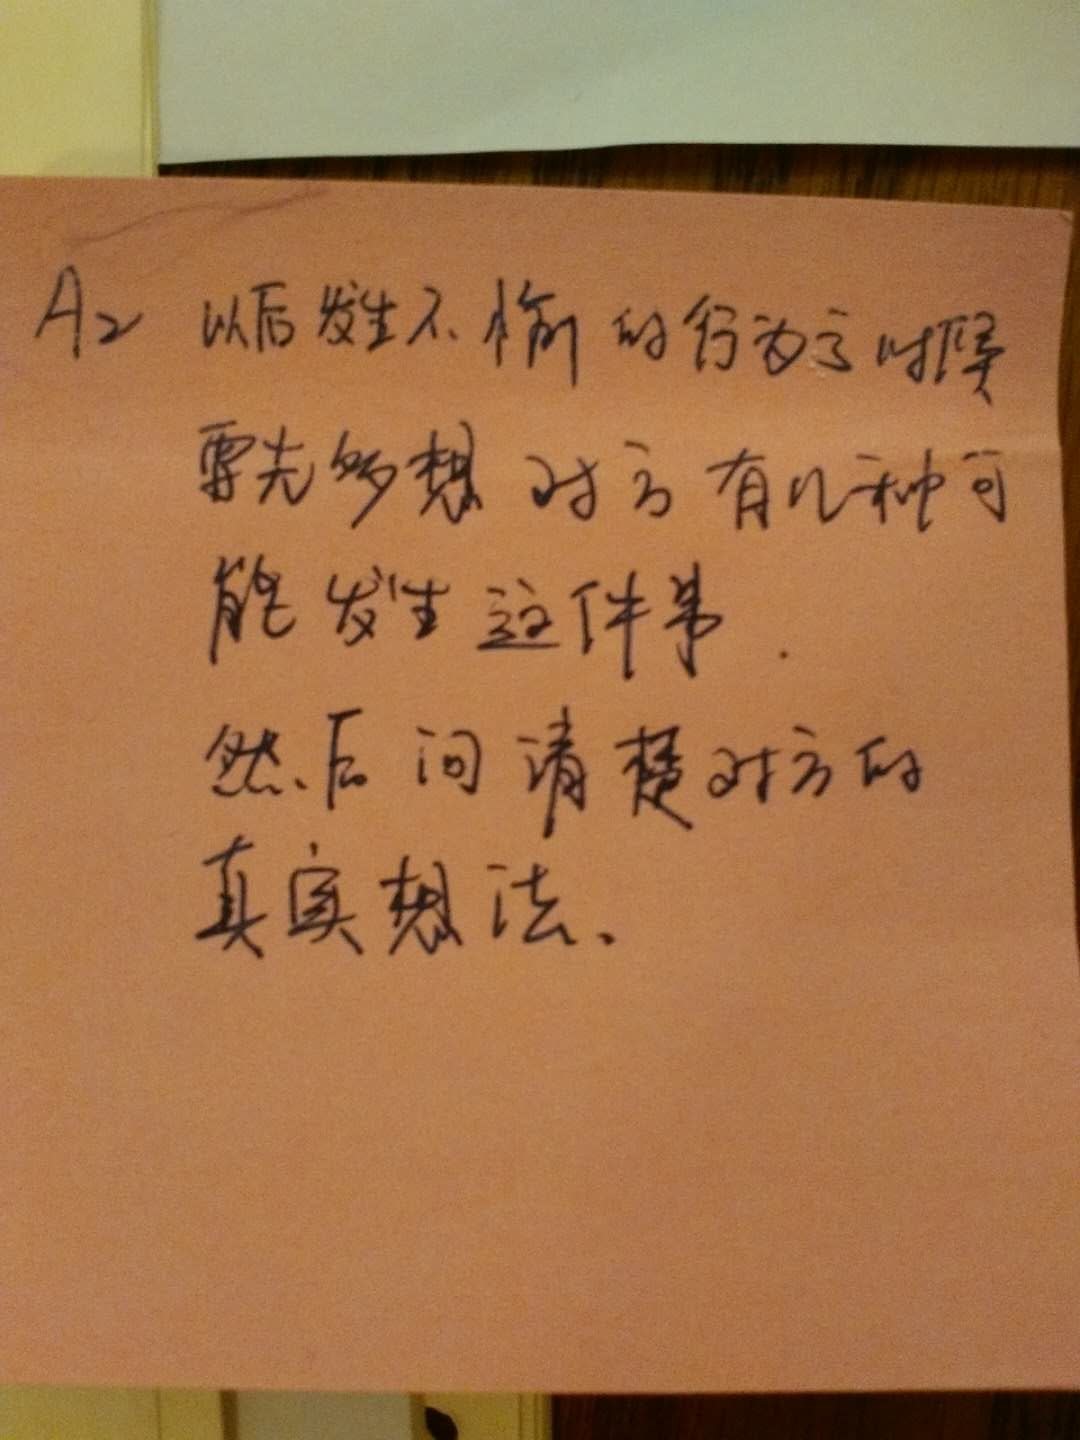 A2 以后发生不愉的行为之时候
要先多想对方有几种可
能发生这件事.
然后问清楚对方的
真实想法、